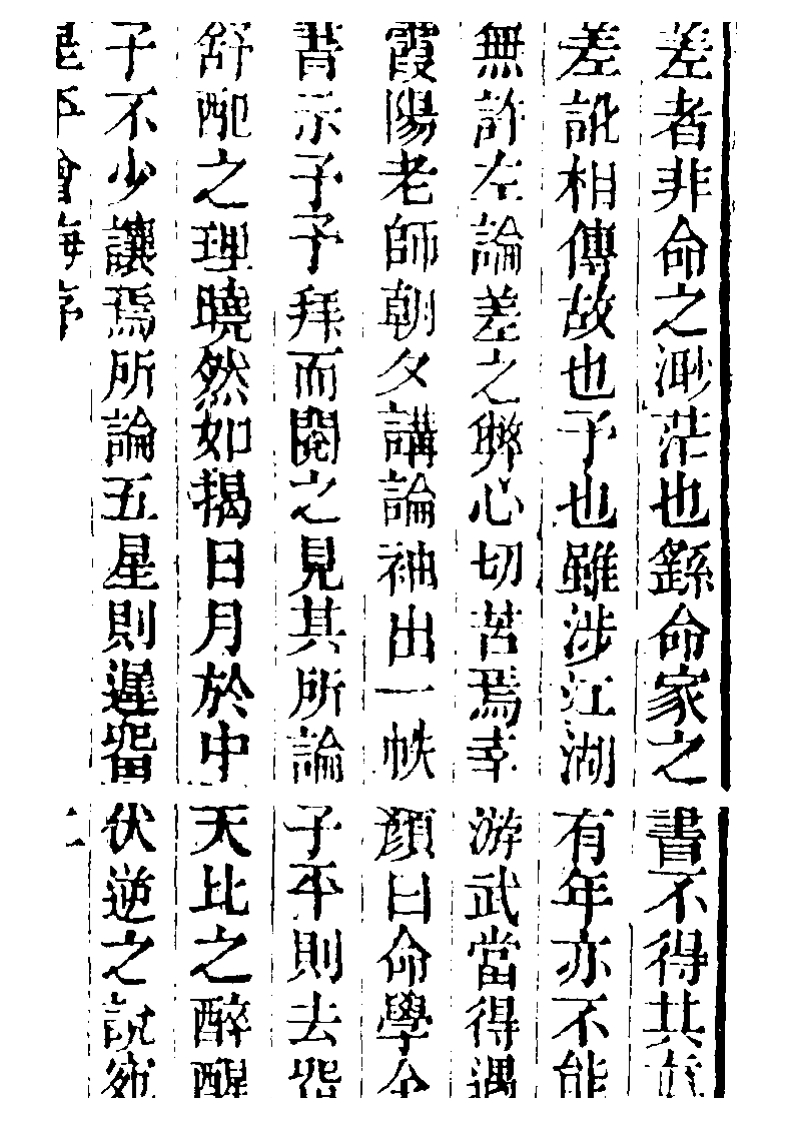 差者非命之渺茫也繇命家之書不得其真
差訛相傳故也予也雖涉江湖有年亦不能
無許左論差之弊心切苦焉幸游武當得遇
霞陽老師朝夕講論袖出一帙顏曰命學全
書示予予拜而閱之見其所論子平則去留
舒配之理曉然如揭日月於中天比之醉醒
子不少讓焉所論五星則遲留伏逆之說宛
星平會海序 二